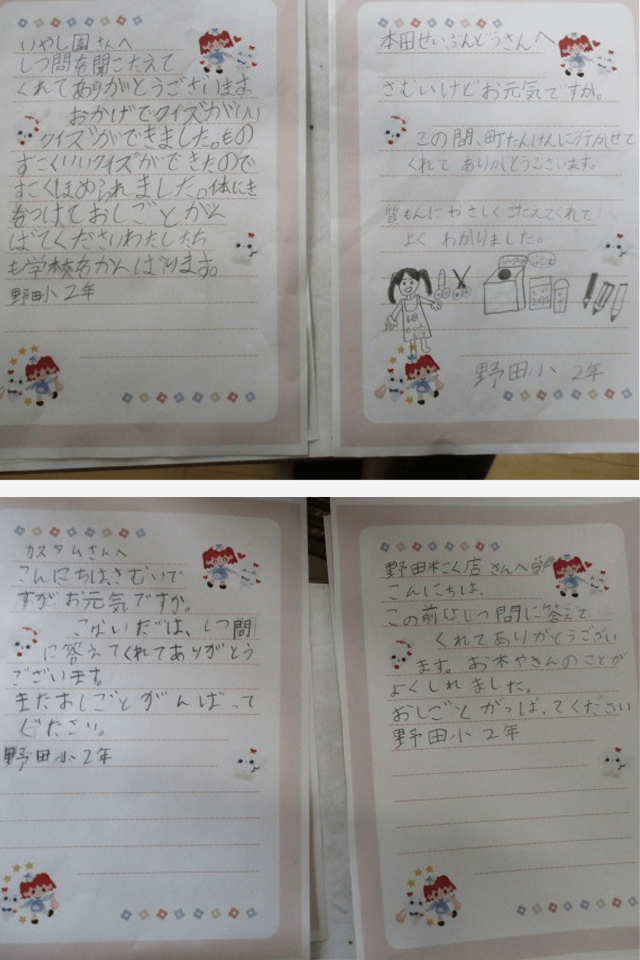 いやし園さんへ
しつ問を聞こたえて
くれてありがとうございます。
おかげでクイズがいい
クイズができました。もの
すごくいいクイズができたので
すごくほめられました。体にき
をつけておしごとがん
ばてくださいわたしたち
も学校をがんばります。
野田小2年
本田せいぶんどうさんへ
さむいけどお元気ですか。
この間、町たんけんに行かせて
くれてありがとうございます。
質もんにやさしくこたえてくれて
よくわかりました。
野田小 2年
カスタムさんへ
こんにちは、さむいで
すがお元気ですか。
こないだは、しつ問
に答えてくれてありがとう
ございます。
またおしごとがんばって
ください。
野田小2年
野田本こく店さんへ
こんにちは、
この前はしつ問に答えて
くれてありがとうござい
ます。お米やさんのことが
よくしれました。
おしごとがっぱってください
野田小2年